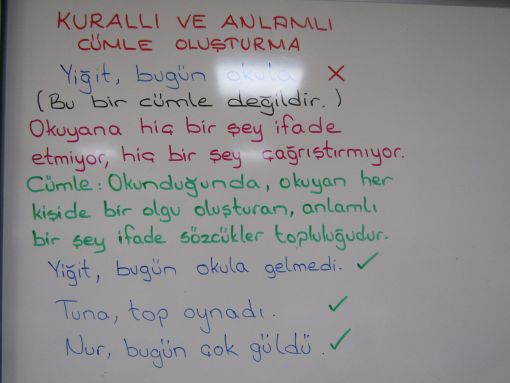 KURALLI VE ANLAMLI
CÜMLE OLUŞTURMA
Yiğit, bugün okula X
(Bu bir cümle değildir.)
Okuyana hiç bir şey ifade
etmiyor, hiç bir şey çağrıştırmıyor.
Cümle: Okunduğunda, okuyan her
kişide bir olgu oluşturan, anlamlı
bir şey ifade sözcükler topluluğudur.
Yiğit, bugün okula gelmedi. ✓
Tuna, top oynadı. ✓
Nur, bugün çok güldü. ✓